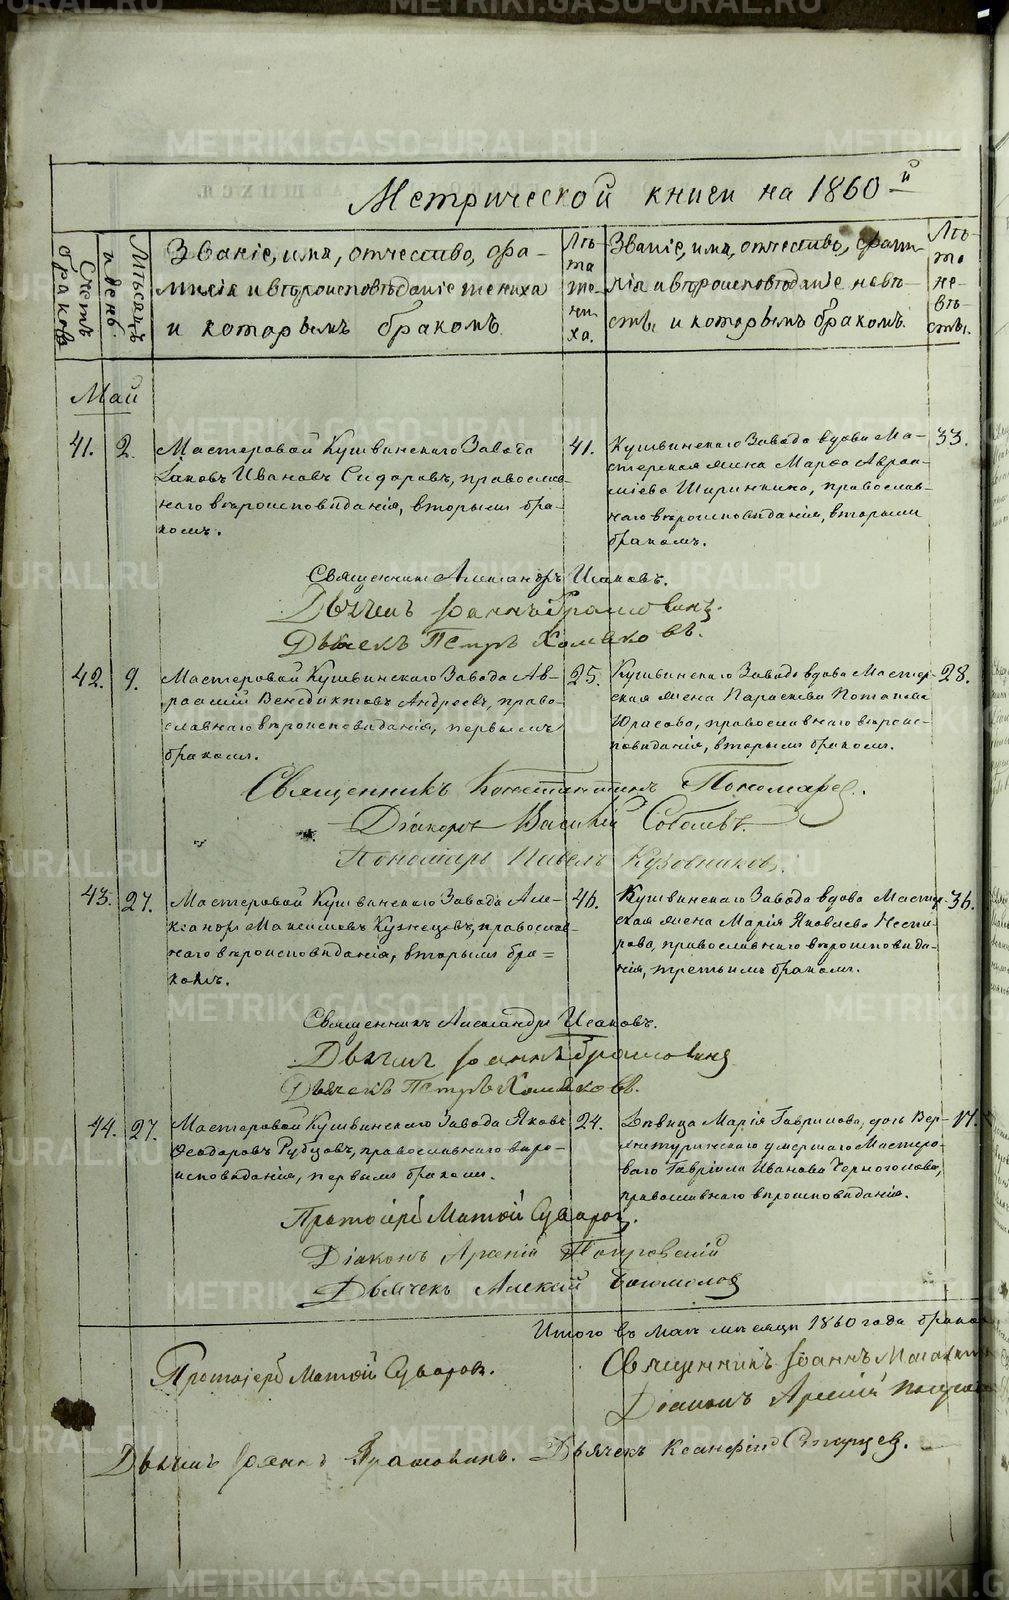 METRIKI.GASO-URAL.RU
Метрической книги на 1860й
Счетъ браковъ
Мѣсяцъ и день
Званіе, имя, отчество, фамилія и вѣроисповѣданіе жениха и которымъ бракомъ.
Лѣта жениха.
Званіе, имя, отчество, фамилія и вѣроисповѣданіе невѣсты и которымъ бракомъ.
Лѣта невѣсты.
Май
41. 2.
Мастеровой Кушвинскаго Завода
Іаковъ Ивановъ Сидоровъ, православ-
наго вѣроисповѣданія, вторымъ бра-
комъ.
41.
Кушвинскаго Завода вдова Ма-
стерская жена Марѳа Авраа-
міева Ширинкина, православ-
наго вѣроисповѣданія, вторымъ
бракомъ.
33.
Священникъ Александръ Исаковъ.
Дьячекъ Іоаннъ
Дьячекъ Петръ Хомяковъ.
42. 9.
Мастеровой Кушвинскаго Завода Ав-
раамій Венедиктовъ Андреевъ, право-
славнаго вѣроисповѣданія, первымъ
бракомъ.
25.
Кушвинскаго Завода вдова Мастер-
ская жена Параскева Потапова
Юрасова, православнаго вѣроис-
повѣданія, вторымъ бракомъ.
28.
Священникъ Константинъ Пономарев.
Діаконъ Василій Соболевъ.
Пономарь Павелъ
43. 27.
Мастеровой Кушвинскаго Завода Але-
ксандръ Максимовъ Кузнецовъ, православ-
наго вѣроисповѣданія, вторымъ бра=
комъ.
46.
Кушвинскаго Завода вдова Мастер-
ская жена Марія Яковлева
православнаго вѣроисповѣда-
нія, третьимъ бракомъ.
36.
Священникъ Александръ Исаковъ.
Дьячекъ Іоаннъ
Дьячекъ Петръ Хомяковъ.
44. 27.
Мастеровой Кушвинскаго Завода Яковъ
Ѳеодоровъ Рубцовъ, православнаго вѣро-
исповѣданія, первымъ бракомъ.
24.
Дѣвица Марія Гаврилова, дочь Вер-
хнетуринскаго умершаго Мастеро-
ваго Гавріила Иванова Черноголова,
православнаго вѣроисповѣданія.
17.
Протоіерей Матѳій Суворов.
Діаконъ Арсеній Покровскій
Дьячекъ Алексій Богомолов
Итого въ Маѣ мѣсяцѣ 1860 года брако
Протоіерей Матѳій Суворов.
Священникъ Іоаннъ
Діаконъ Арсеній Покров
Дьячекъ Іоаннъ
Дьячекъ Ксанфій Старцев.